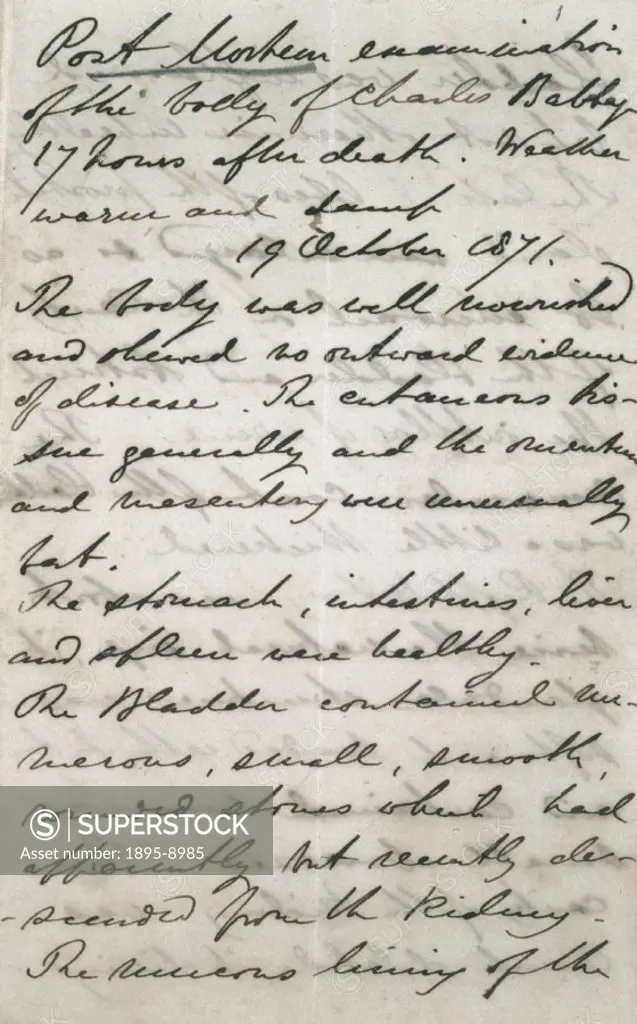 Post Mortem examination
of the body of Charles Babbage
17 hours after death. Weather
warm and damp
19 October 1871.
The body was well nourished
and shewed no outward evidence
of disease. The cutaneous tis-
sue generally and the omentum
and mesentery were unusually
fat.
The stomach, intestines, liver
and spleen were healthy.
The Bladder contained nu-
merous, small, smooth,
stones which had
apparently but recently de-
-scended from the Kidney.
The mucous lining of the
SUPERSTOCK
Asset number: 1895-8985